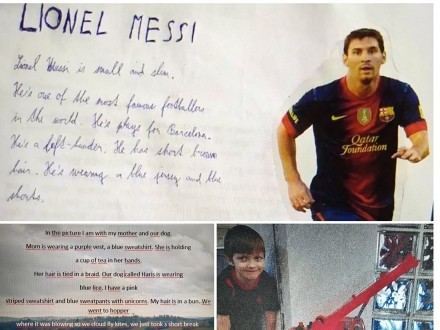 LIONEL MESSI
Lionel Messi is small and slim.
He's one of the most famous footballers
in the world. He's plays for Barcelona.
He's a left-hander. He has short brown
hair. He's wearing a blue jersey and blue
shorts.
Qatar
Foundation
In the picture I am with my mother and our dog.
Mom is wearing a purple vest, a blue sweatshirt. She is holding
a cup of tea in her hands.
Her hair is tied in a braid. Our dog called Haris is wearing
blue lice. I have a pink
striped sweatshirt and blue sweatpants with unicorns. My hair is in a bun. We
went to hopper
where it was blowing so we cloud fly kites, we just took a short break